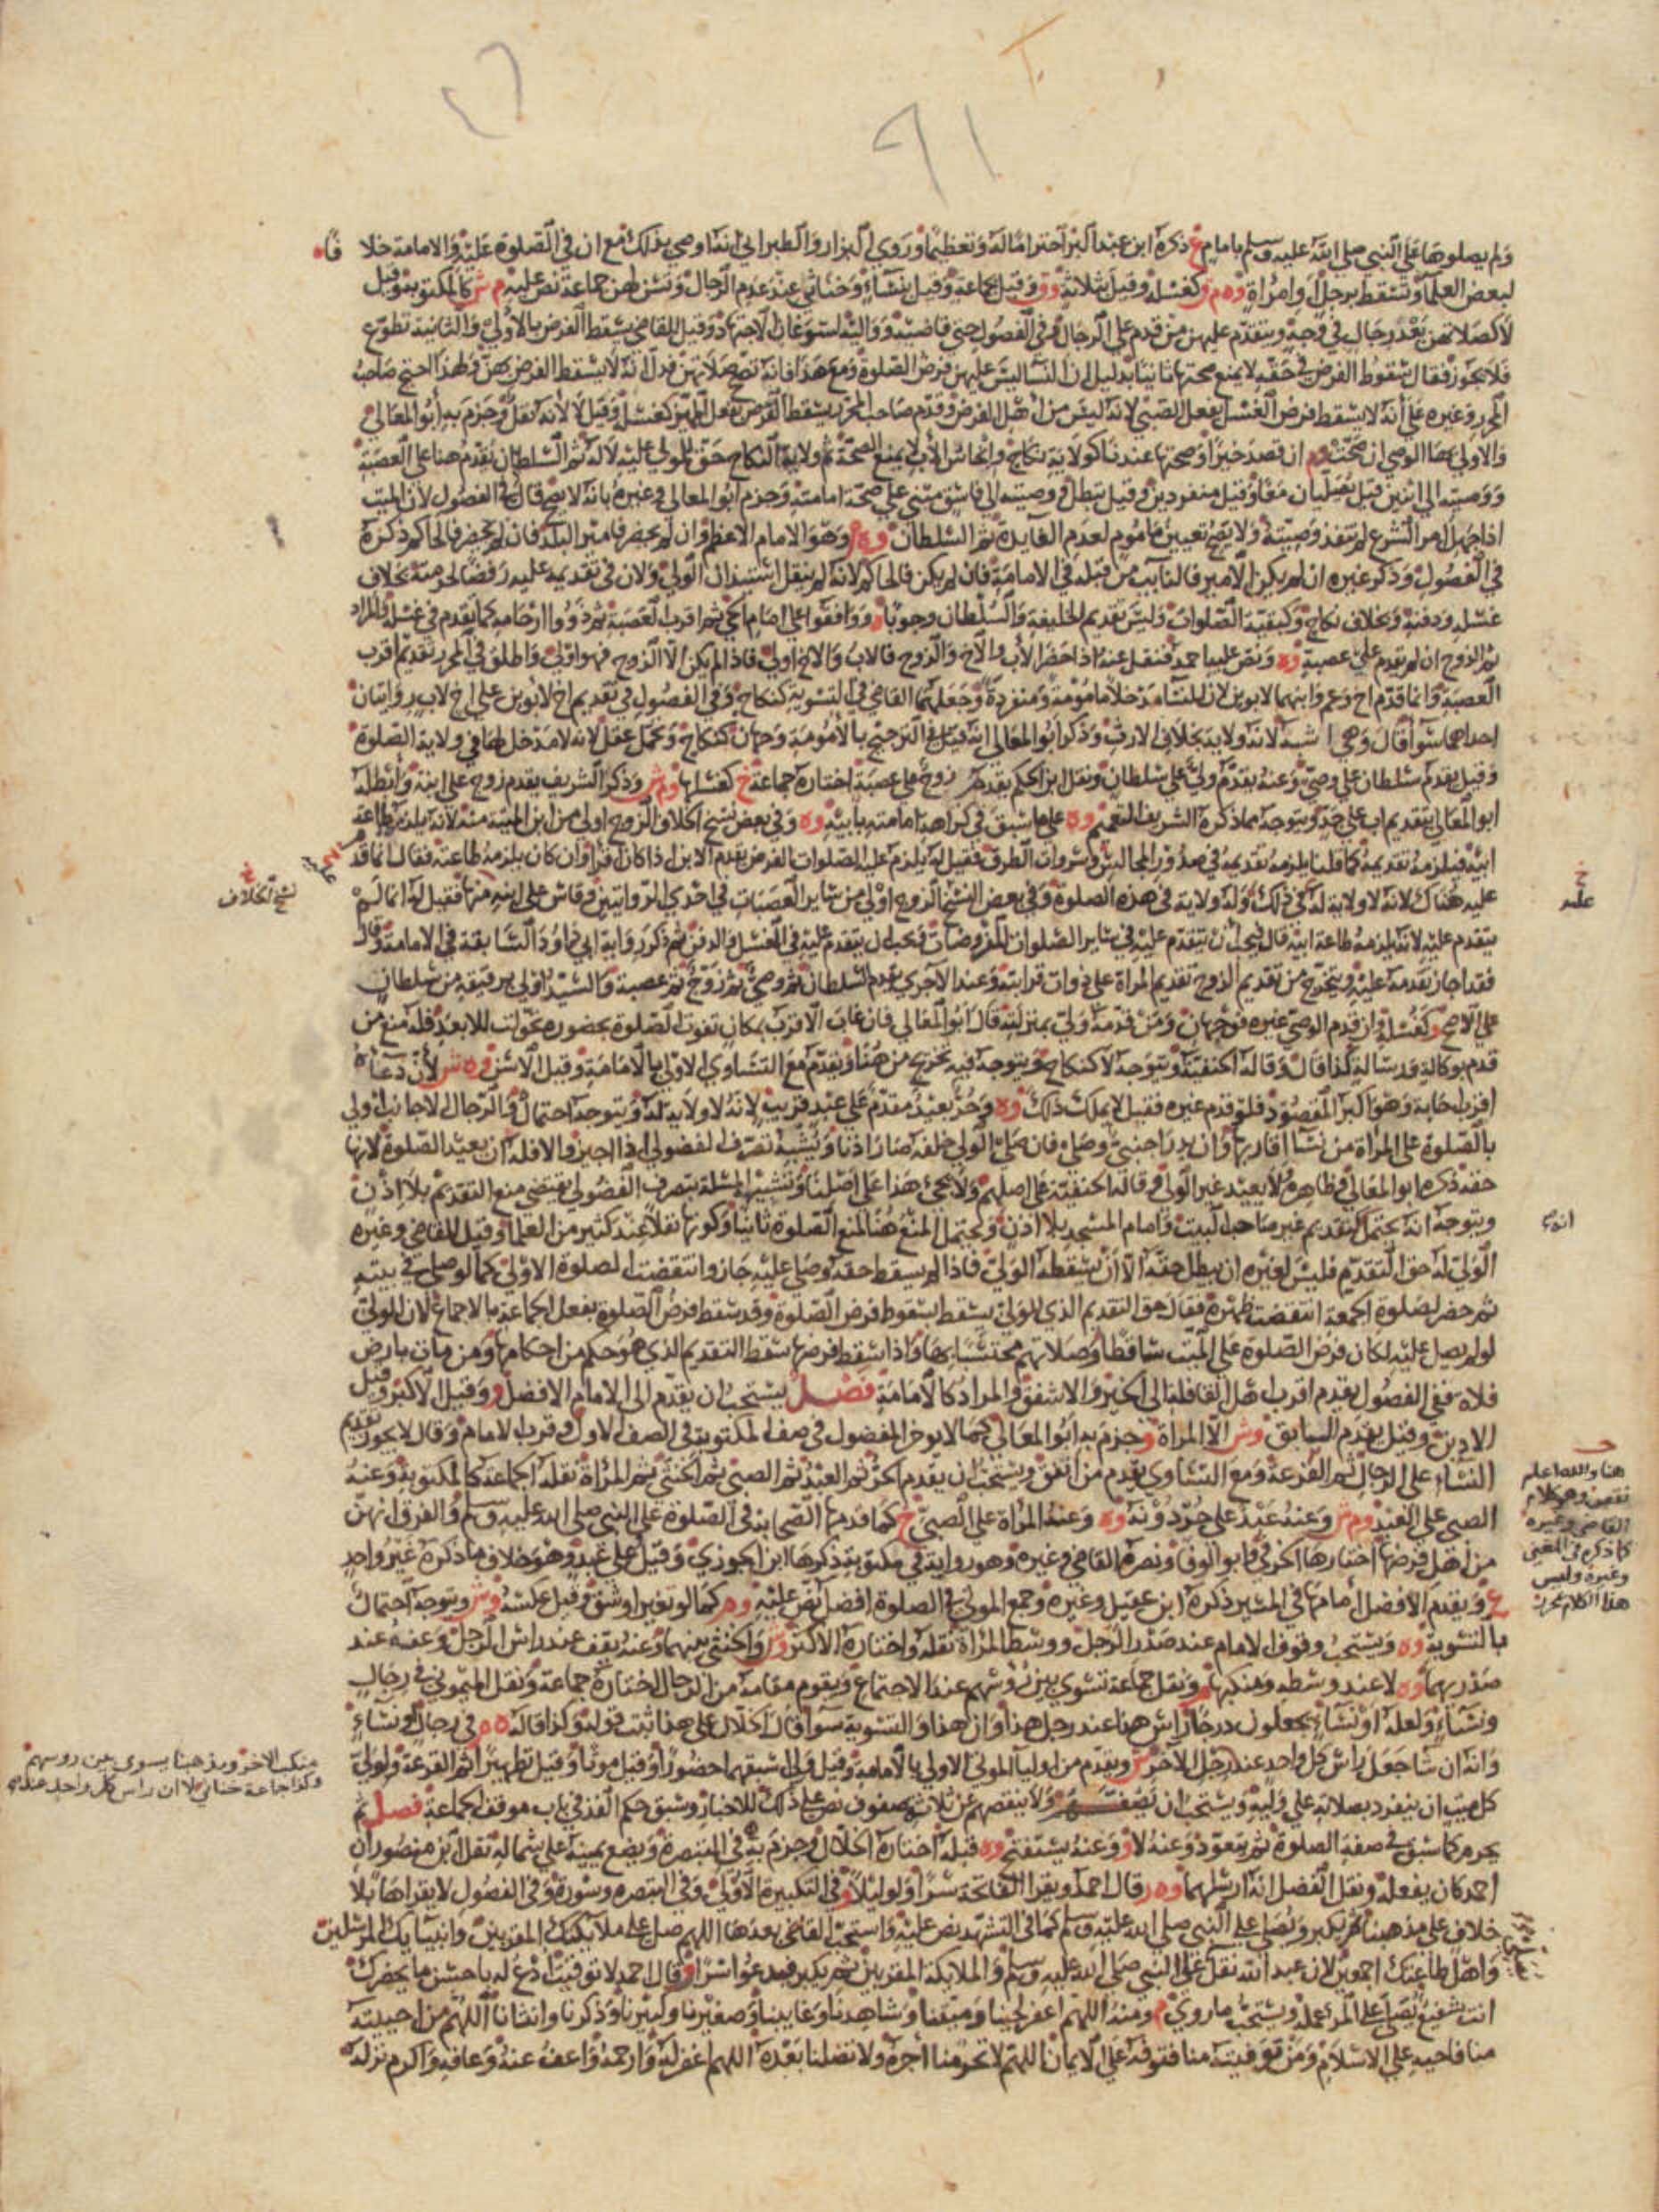 ولم يصلوها على النبي صلى الله عليه وسلم بامام ع ذكره ابن عبد البر احتراما له وتعظيما وروى البزار والطبراني انه اوصى بذلك مع ان في الصلوة عليه والامامة خلافا
لبعض العلما وتسقط برجل وامراة وه م ر كغسله وقيل بثلاثة وق وقيل بجماعة وقيل بنساء وخناثى عند عدم الرجال وتسن لهن جماعة نص عليه م ش كالمكتوبة وقيل
لا كصلاتهن بعد رجال في وجه ويتقدم عليهن من قدم على الرجال وفي الفصول حتى قاضية ووالية استوعاظ الاجتهاد وقيل للقاضي يسقط الفرض بالاولى والثانية تطوع
فلا يجوز فقال سقوط الفرض في حقه لا يمنع صحتها ثانيا بدليل ان النسا ليس عليهن فرض الصلوة ومع هذا فانه تصح صلاتهن فدل انه لا يسقط الفرض بهن ولهذا احتج صاحب
المحرر وغيره على انه لا يسقط فرض الغسل بفعل الصبي لانه ليس من اهل الفرض وقدم صاحب المحرر يسقط الفرض بفعل المميز كغسله وقيل لا لانه نفل وجزم به ابو المعالي
والاولى بها الوصي ان صحت وم ان قصد خيرا وصحتها عندنا كولاية نكاح وايحاش الاب لا يمنع الصحة ثم ولاية النكاح حق للمولى عليه لا له ثم السلطان يقدم هنا على العصبة
ووصيته الى اثنين قيل يصليان معا وقيل منفردين وقيل تبطل ووصيته الى فاسق مبني على صحة امامته وجزم ابو المعالي وغيره بانه لا يصح قال في الفصول لان الميت
اذا جهل امر الشرع لم تنفذ وصيته ولا يصح تعيين ماموم لعدم الفايدة ثم السلطان وه م وهو الامام الاعظم وان لم يحضر فامير البلد فان لم يحضر فالحاكم ذكره
في الفصول وذكر غيره ان لم يكن الامير فالنايب من قبله في الامامة فان لم يكن فالحاكم لانه لم ينقل استيذان الولي ولان في تقديمه عليه رفضا لحرمته بخلاف
غسله ودفنه وبخلاف نكاح وكبقية الصلوات وليس تقديم الخليفة والسلطان وجوبا ه ووافقوا على امام الحي ثم اقرب العصبة ثم ذووا ارحامه كما يقدم في غسله والمراد
ثم الزوج ان لم يقدم على عصبة وه ونص عليه احمد فنقل عنه اذا حضر الاب والاخ والزوج فالاب والاخ اولى فاذا لم يكن الا الزوج فهو اولى واطلق في المحرر تقديم اقرب
العصبة وانما قدم اخ وعم وابنهما لابوين لان للنسا مدخلا مامومة ومنفردة وجعلهما القاضي في التسوية كنكاح وفي الفصول في تقديم اخ لابوين على اخ لاب روايتان
احداهما سوا قال وهي اشبه لانه ولاية بخلاف الارث وذكر ابو المعالي انه قيل في الترجيح بالامومة وجهان كنكاح وتحمل عقل لانه لا مدخل لها في ولاية الصلوة
وقيل يقدم سلطان على وصي وعنه يقدم ولي على سلطان ونقل ابن الحكم يقدم زوج على عصبة اختاره جماعة خ كغسلها وم ش وذكر الشريف يقدم زوج على ابنه وابطله
ابو المعالي بتقديم اب على جد ويتوجه مما ذكره الشريف التعميم وه على ما سبق في كراهة امامته بابيه وه وفي بعض نسخ الخلاف الزوج اولى من ابن الميتة منه لانه يلزمه طاعة
ابيه فيلزمه تقديمه كما قلنا يلزمه تقديمه في صدور المجالس وسروات الطرق فقيل له يلزم عليه الصلوات الفرض يقدم الابن اذا كان اقرا وان كان يلزمه طاعته فقال انما قدم
عليه هناك لانه لا ولاية له في ذلك وله ولاية في هذه الصلوة وفي بعض النسخ الزوج اولى من ساير العصبات في احدى الروايتين وقاس على ابنه منها فقيل له انما لم
يتقدم عليه لانه يلزمه طاعة ابيه قال فيجب ان يتقدم عليه في ساير الصلوات المفروضات فيجب ان يتقدم عليه في الغسل والدفن ثم ذكر رواية ابي داود السابقة في الامامة وقال
فقد اجاز تقدمه عليه ويتخرج من تقديم الزوج تقديم المراة على ذوات قرابته وعند الاجري يقدم السلطان ثم وصي ثم زوج ثم عصبة والسيد اولى برقيقه من سلطان
على الاصح و كغسله وان قدم الوصي غيره فوجهان ومن قدمه ولي بمنزلته قال ابو المعالي فان غاب الاقرب بمكان تفوت الصلوة بحضوره تحولت للابعد فله منع من
قدم بوكالة ورسالة كذا قال وقاله الحنفية ويتوجه لا كنكاح ويتوجه فيه تخريج من هنا ويقدم مع التساوي الاولى بالامامة وقيل الاسن وه ش لان دعاه
اقرب اجابة وهو اكبر المقصود فلو قدم غيره فقيل لا يملك ذلك وه وحر بعيد مقدم على عبد قريب لانه لا ولاية له ويتوجه احتمال والرجال الاجانب اولى
بالصلوة على المراة من نسا اقاربها وان بدر اجنبي وصلى فان صلى الولي خلفه صار اذنا ويشبه تصرف الفضولي اذا اجيز والا فله ان يعيد الصلوة لانها
حقه ذكره ابو المعالي وظاهره لا يعيد غير الولي وقاله الحنفية على اصلهم ولا يجيء هذا على اصلنا وتشبيه المسئلة بتصرف الفضولي يقتضي منع التقديم بلا اذن
ويتوجه انه يحتمل كتقديم غير صاحب البيت وامام المسجد بلا اذن ويحتمل المنع هنا لمنع الصلوة ثانيا وكونها نفلا عند كثير من العلما وقيل للقاضي وغيره
الولي له حق التقدم فليس لغيره ان يبطل حقه الا ان يسقطه الولي فاذا لم يسقط حقه وصلي عليه جاز وانتقضت الصلوة الاولى كما لو صلى في بيته
ثم حضر لصلوة الجمعة انتقضت ظهره فقال حق التقديم الذي للولي يسقط بسقوط فرض الصلوة وقد سقط فرض الصلوة بفعل الجماعة بالاجماع لان الولي
لو لم يصل عليه لكان فرض الصلوة على الميت ساقطا وصلاتهم محتسبا بها واذا سقط فرضها سقط التقديم الذي هو حكم من احكامها ومن مات بارض
فلاة ففي الفصول يقدم اقرب اهل القافلة الى الخير والاشفق والمراد كالامامة فصل يستحب ان يقدم الى الامام الافضل و وقيل الاكبر وقيل
الادين وقيل يقدم السابق وش الا المراة وجزم به ابو المعالي كما لا يوخر المفضول في صف المكتوبة في الصف الاول وقرب الامام وقال لا يجوز تقديم
النساء على الرجال ثم القرعة ومع التساوي يقدم من اتفق ويستحب ان يقدم الحر ثم العبد ثم الصبي ثم الخنثى ثم المراة نقله الجماعة كالمكتوبة وعنه
الصبي على العبد وم ش وعنه عبد على حر دونه وه وعنه المراة على الصبي خ كما قدمها الصحابة في الصلوة على النبي صلى الله عليه وسلم والفرق انهن
من اهل فرضها اختارها الخرقي وابو الوفا ونصره القاضي وغيره وهو رواية في مكتوبة ذكرها ابن الجوزي وقيل على عبد وهو خلاف ما ذكره غير واحد
ع ويقدم الافضل امامها في المسير ذكره ابن عقيل وغيره وجمع الموتى في الصلوة افضل نص عليه وه ر كما لو تغير او شق وقيل عكسه وش ويتوجه احتمال
بالتسوية وه ويستحب وقوف الامام عند صدر الرجل ووسط المراة نقله واختاره الاكثر وش والخنثى بينهما وعنه يقف عند راس الرجل وعنه عند
صدريهما وه لا عند وسطه ومنكبها م ونقل جماعة تسوي بين رؤسهم عند الاجتماع ويقوم مقامه من الرجال اختاره جماعة ونقل الميموني في رجال
ونساء ولعله او نساء يجعلون درجا راس هذا عند رجل هذا وان هذا والتسوية سوا قال الخلال على هذا ثبت قوله وكذا قاله ه ه في رجال ونساء
وانه ان شا جعل راس كل واحد عند رجل الاخر س ويقدم من اوليا الموتى الاولى بالامامة وقيل ولي اسبقهما حضورا وقيل موتا وقيل تطهيرا ثم القرعة ولولي
كل ميت ان ينفرد بصلاته على وليه ويستحب ان يصفهم ولا ينقصهم عن ثلاثة صفوف نص على ذلك للاخبار وسبق حكم الفذ في باب موقف الجماعة فصل ثم
يحرم كما سبق في صفة الصلوة ثم يتعوذ وعنه لا و وعنه يستفتح وه قبله اختاره الخلال وجزم به في التبصرة ويضع يمينه على شماله نقل ابن منصور ان
احمد كان يفعله ونقل الفضل انه ارسلهما وه ر قال احمد ويقرا الفاتحة سرا ولو ليلا و في التكبيرة الاولى وفي التبصره وسورة وفي الفصول لا يقراها بلا
خلاف على مذهبنا ثم يكبر ويصلي على النبي صلى الله عليه وسلم كما في التشهد نص عليه واستحب القاضي بعدها اللهم صل على ملايكتك المقربين وانبيايك المرسلين
واهل طاعتك اجمعين لان عبد الله نقل على النبي صلى الله عليه وسلم والملايكة المقربين ثم يكبر فيدعوا سرا و قال احمد لا توقيت ادع له باحسن ما يحضرك
انت شفيع يصلى على المرء عمله ويستحب ما روي م ومنه اللهم اغفر لحينا وميتنا وشاهدنا وغايبنا وصغيرنا وكبيرنا وذكرنا وانثانا اللهم من احييته
منا فاحيه على الاسلام ومن توفيته منا فتوفه على الايمان اللهم لا تحرمنا اجره ولا تضلنا بعده اللهم اغفر له وارحمه واعف عنه وعافه واكرم نزله
خ
عليه
نسخ الخلاف
هنا والله اعلم
نقص وهو كلام
القاضي وغيره
كما ذكره في المغني
وغيره وليس
هذا الكلام محرر
منكب الاخر ومذهبنا يسوى بين روسهم